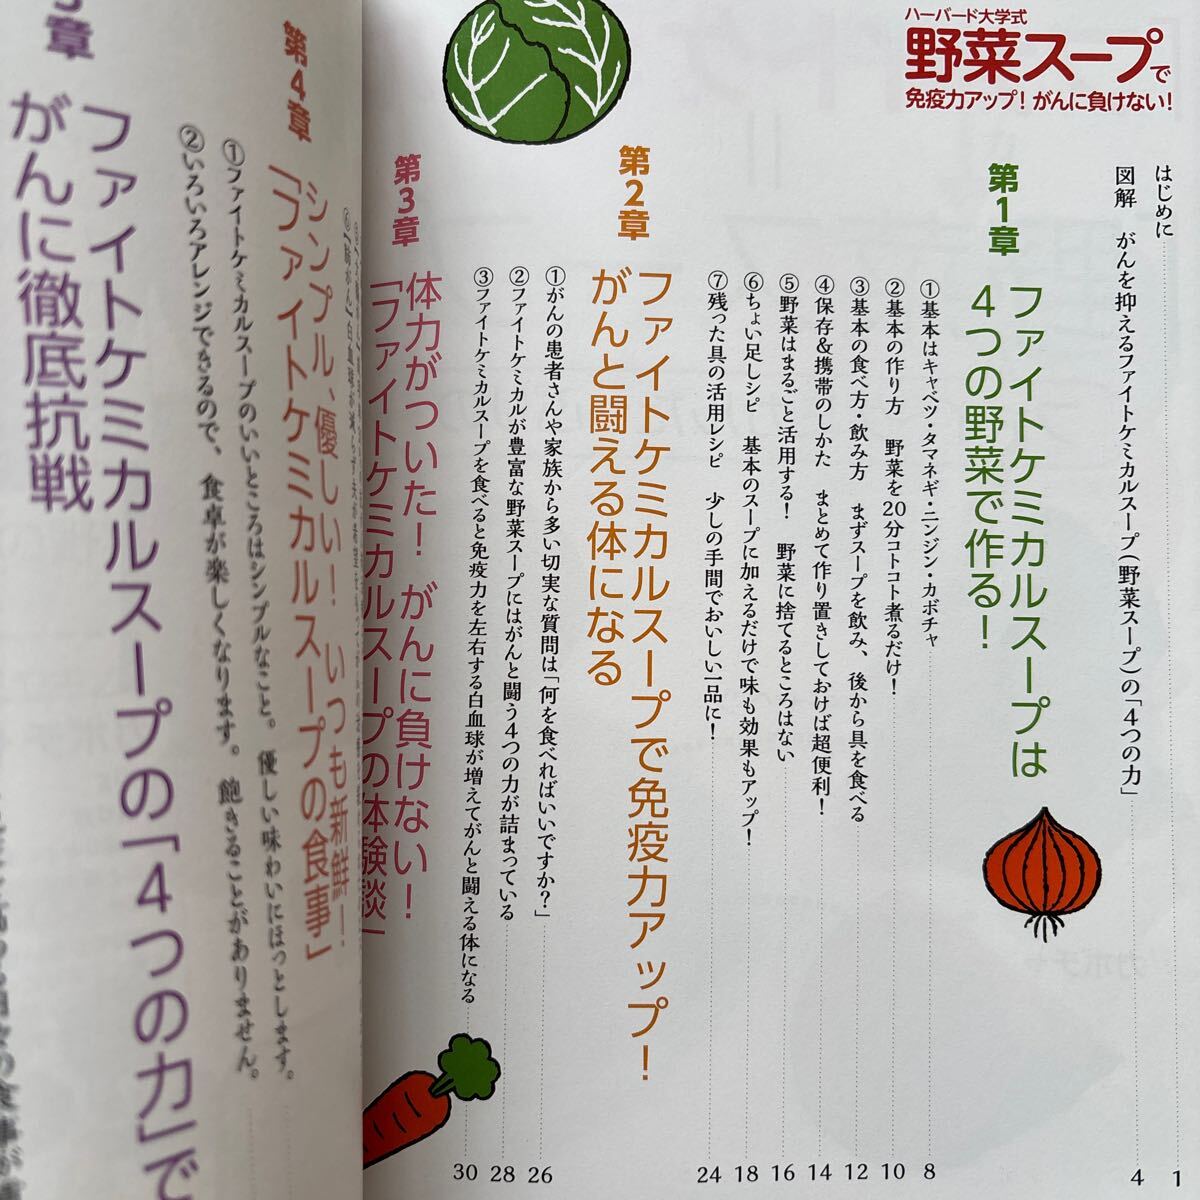 ハーバード大学式
野菜スープで
免疫力アップ！がんに負けない！
はじめに 1
図解　がんを抑えるファイトケミカルスープ（野菜スープ）の「4つの力」 4
第1章
ファイトケミカルスープは
4つの野菜で作る！
①基本はキャベツ・タマネギ・ニンジン・カボチャ 8
②基本の作り方　野菜を20分コトコト煮るだけ！ 10
③基本の食べ方・飲み方　まずスープを飲み、後から具を食べる 12
④保存&携帯のしかた　まとめて作り置きしておけば超便利！ 14
⑤野菜はまるごと活用する！　野菜に捨てるところはない 16
⑥ちょい足しレシピ　基本のスープに加えるだけで味も効果もアップ！ 18
⑦残った具の活用レシピ　少しの手間でおいしい一品に！ 24
第2章
ファイトケミカルスープで免疫力アップ！
がんと闘える体になる
①がんの患者さんや家族から多い切実な質問は「何を食べればいいですか？」 26
②ファイトケミカルが豊富な野菜スープにはがんと闘う4つの力が詰まっている 28
③ファイトケミカルスープを食べると免疫力を左右する白血球が増えてがんと闘える体になる 30
第3章
体力がついた！がんに負けない！
「ファイトケミカルスープの体験談」
第4章
シンプル、優しい！いつも新鮮！
「ファイトケミカルスープの食事」
①ファイトケミカルスープのいいところはシンプルなこと。優しい味わいにほっとします。
②いろいろアレンジできるので、食卓が楽しくなります。飽きることがありません。
章
ファイトケミカルスープの「4つの力」で
がんに徹底抗戦